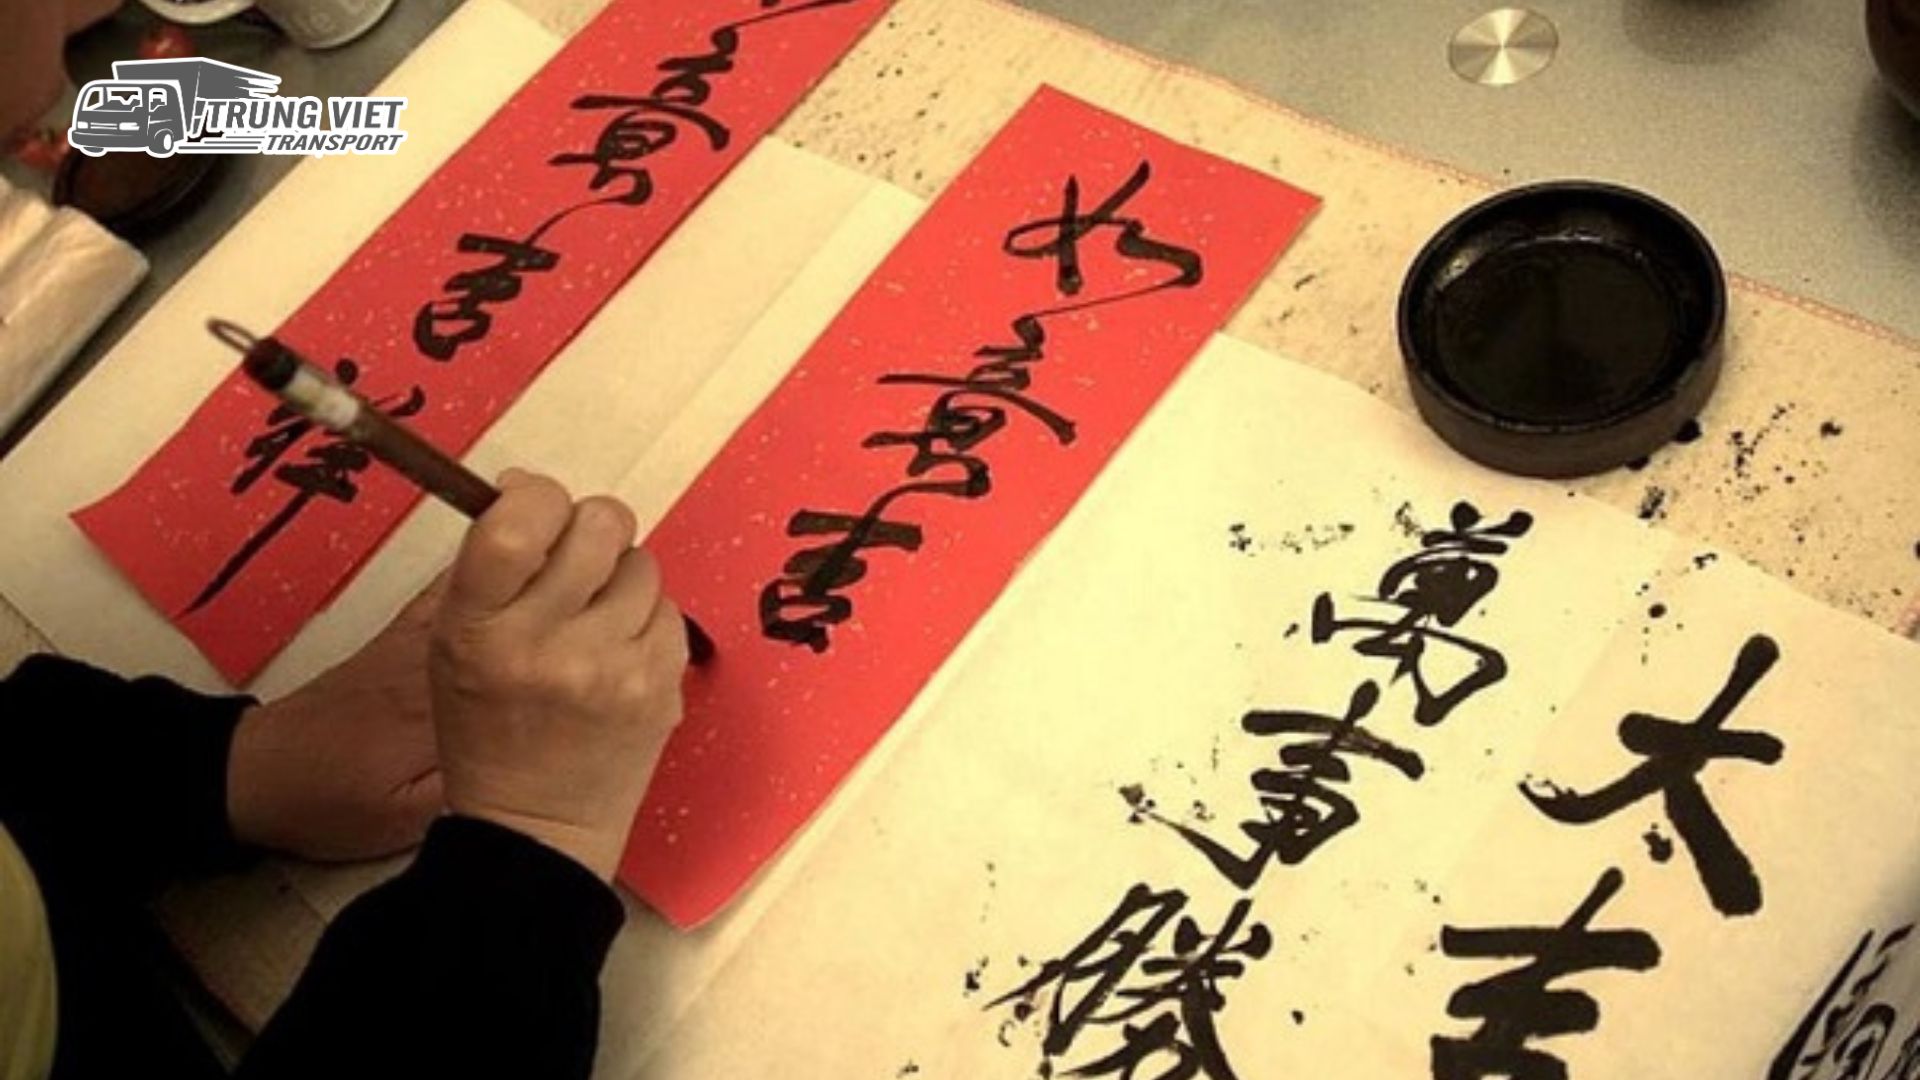 TRUNG VIET
TRANSPORT
意吉祥
如意吉
萬事勝
大吉